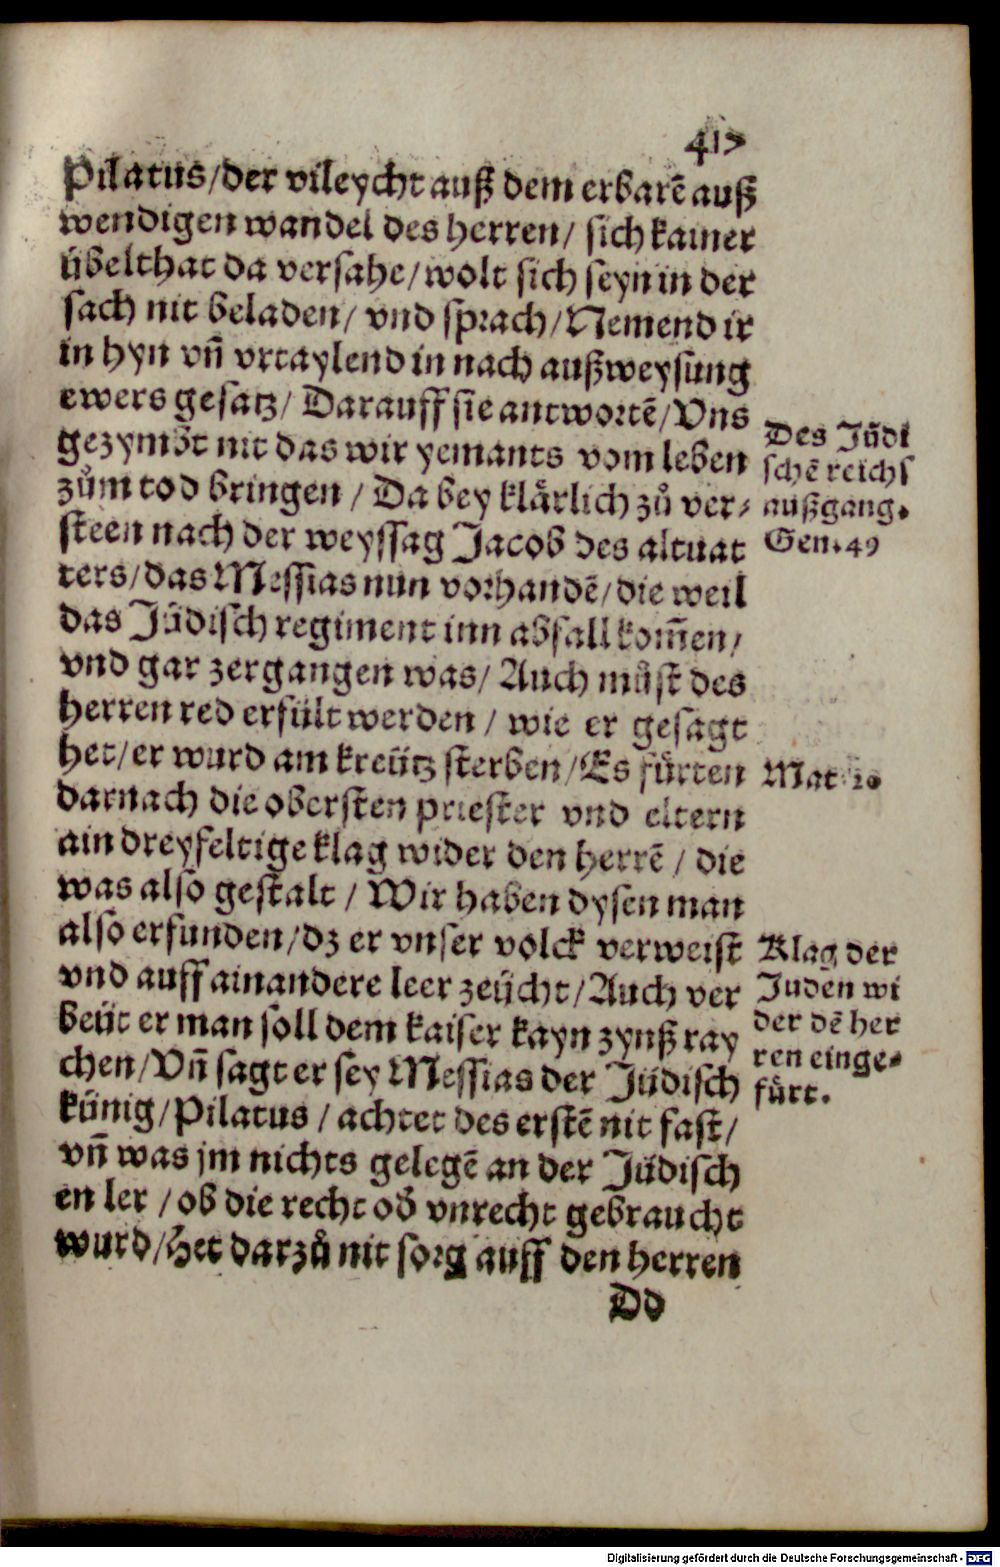 417
Pilatus/der vileycht auß dem erbarē auß
wendigen wandel des herren/ sich kainer
übelthat da versahe/wolt sich seyn in der
sach nit beladen/ vnd sprach/Nemend ir
in hyn vñ vrtaylend in nach außweysung
ewers gesatz/ Darauff sie antwortē/Vns
gezymbt nit das wir yemants vom leben
zům tod bringen / Da bey klårlich zů ver⸗
steen nach der weyssag Jacob des altuat
ters/das Messias nun vorhandē/die weil
das Jüdisch regiment inn abfall kom̄en/
vnd gar zergangen was/ Auch můst des
herren red erfült werden / wie er gesagt
het/er wurd am kreütz sterben/Es fůrten
darnach die obersten priester vnd eltern
ain dreyfeltige klag wider den herrē / die
was also gestalt / Wir haben dysen man
also erfunden/dz er vnser volck verweist
vnd auff ain andere leer zeücht/Auch ver
beüt er man soll dem kaiser kayn zynß ray
chen/Vñ sagt er sey Messias der Jüdisch
künig/Pilatus / achtet des erstē nit fast/
vñ was jm nichts gelegē an der Jüdisch
en ler / ob die recht od̄ vnrecht gebraucht
wurd/Het darzů nit sorg auff den herren
Dd
Des Jüdi
schē reichs
außgang.
Gen.49
Mat.
Klag der
Juden wi
der dē her
ren einge⸗
fůrt.
Digitalisierung gefördert durch die Deutsche Forschungsgemeinschaft - DFG